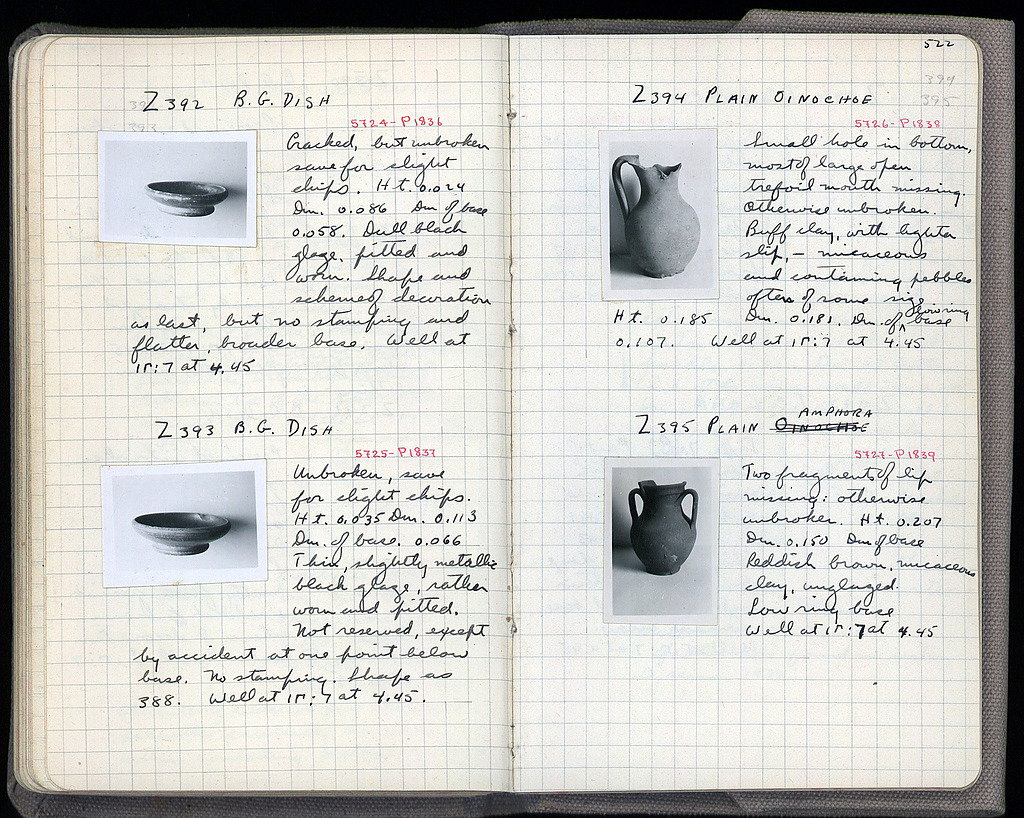 Z 392 B.G. DISH
5724-P1836
Cracked, but unbroken
save for slight
chips. Ht. 0.024
Dm. 0.086 Dm of base
0.058. Dull black
glaze, pitted and
worn. Shape and
scheme of decoration
as last, but no stamping and
flatter, broader base. Well at
ΙΓ:7 at 4.45
Z 393 B.G. DISH
5725-P1837
Unbroken, save
for slight chips.
Ht. 0.035 Dm. 0.113
Dm. of base. 0.066
Thin, slightly metallic
black glaze, rather
worn and pitted.
Not reserved, except
by accident at one point below
base. No stamping. Shape as
388. Well at ΙΓ:7 at 4.45.
522
394
395
Z394 PLAIN OINOCHOE
5726-P1838
Small hole in bottom,
most of large open
trefoil mouth missing.
Otherwise unbroken.
Buff clay, with lighter
slip, – micaceous
and containing pebbles
often of some size
Ht. 0.185 Dm. 0.181. Dm. of low ring base
0.107. Well at ΙΓ:7 at 4.45
Z 395 PLAIN OINOCHOE AMPHORA
5727-P1839
Two fragments of lip
missing: otherwise
unbroken. Ht. 0.207
Dm. 0.150 Dm of base
Reddish brown, micaceous
clay, unglazed.
Low ring base
Well at ΙΓ:7 at 4.45